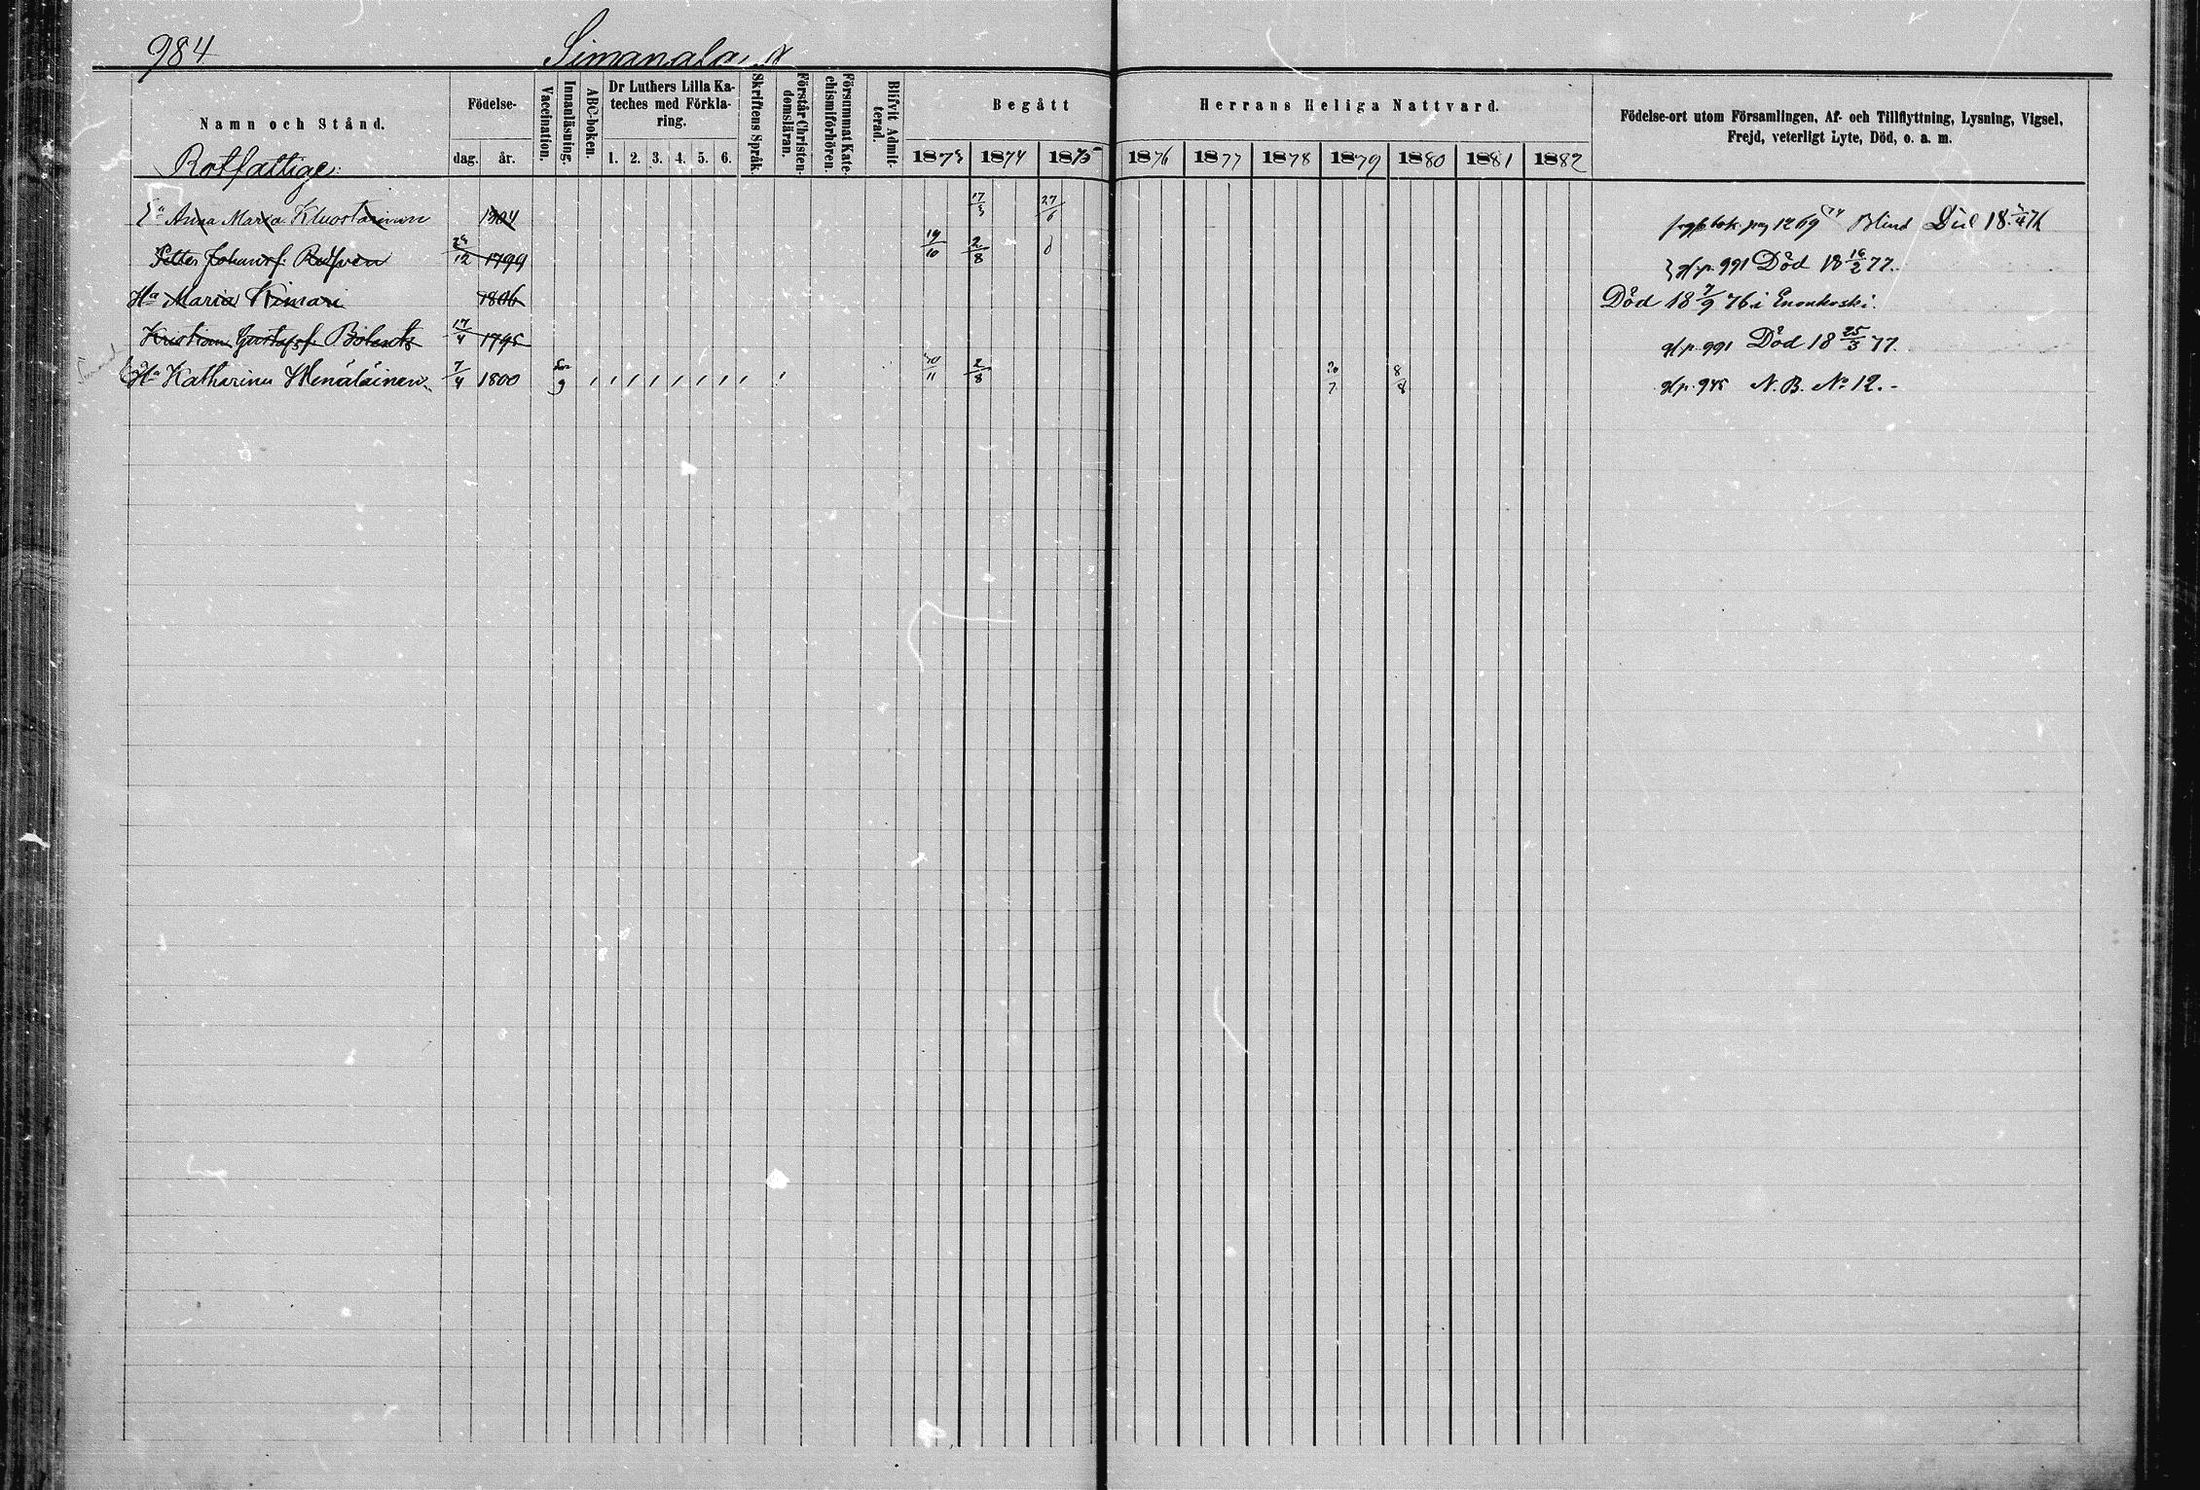 984 Simanala
Namn och Stånd.
Födelse-
dag. år.
Vaccination.
Innanläsning.
ABC-boken.
Dr Luthers Lilla Ka-
teches med Förkla-
ring.
1. 2. 3. 4. 5. 6.
Skriftens Språk
Förstår Christen-
domsläran.
Försummat Kate-
chismiförhören.
Blifvit Admit-
terad.
Begått Herrans Heliga Nattvard.
1873 1874 1875 1876 1877 1878 1879 1880 1881 1882
Födelse-ort utom Församlingen, Af- och Tillflyttning, Lysning, Vigsel,
Frejd, veterligt Lyte, Död, o. a. m.
Rotfattige:
Anna Maria 1804 17/3 27/6 1269 Blind Död
Petter Johansf. 12 1799 19/10 2/8 991 Död 18 16/2 77.
Ha Maria Kimari 1806 Död 18 7/9 76 i Enonkoski.
Kristian Gustafsf. 17/4 1795 991 Död 18 25/3 77.
Ha Katharina 7/4 1800 9 30/11 2/8 20/7 8/8 945 N.B. No 12.-